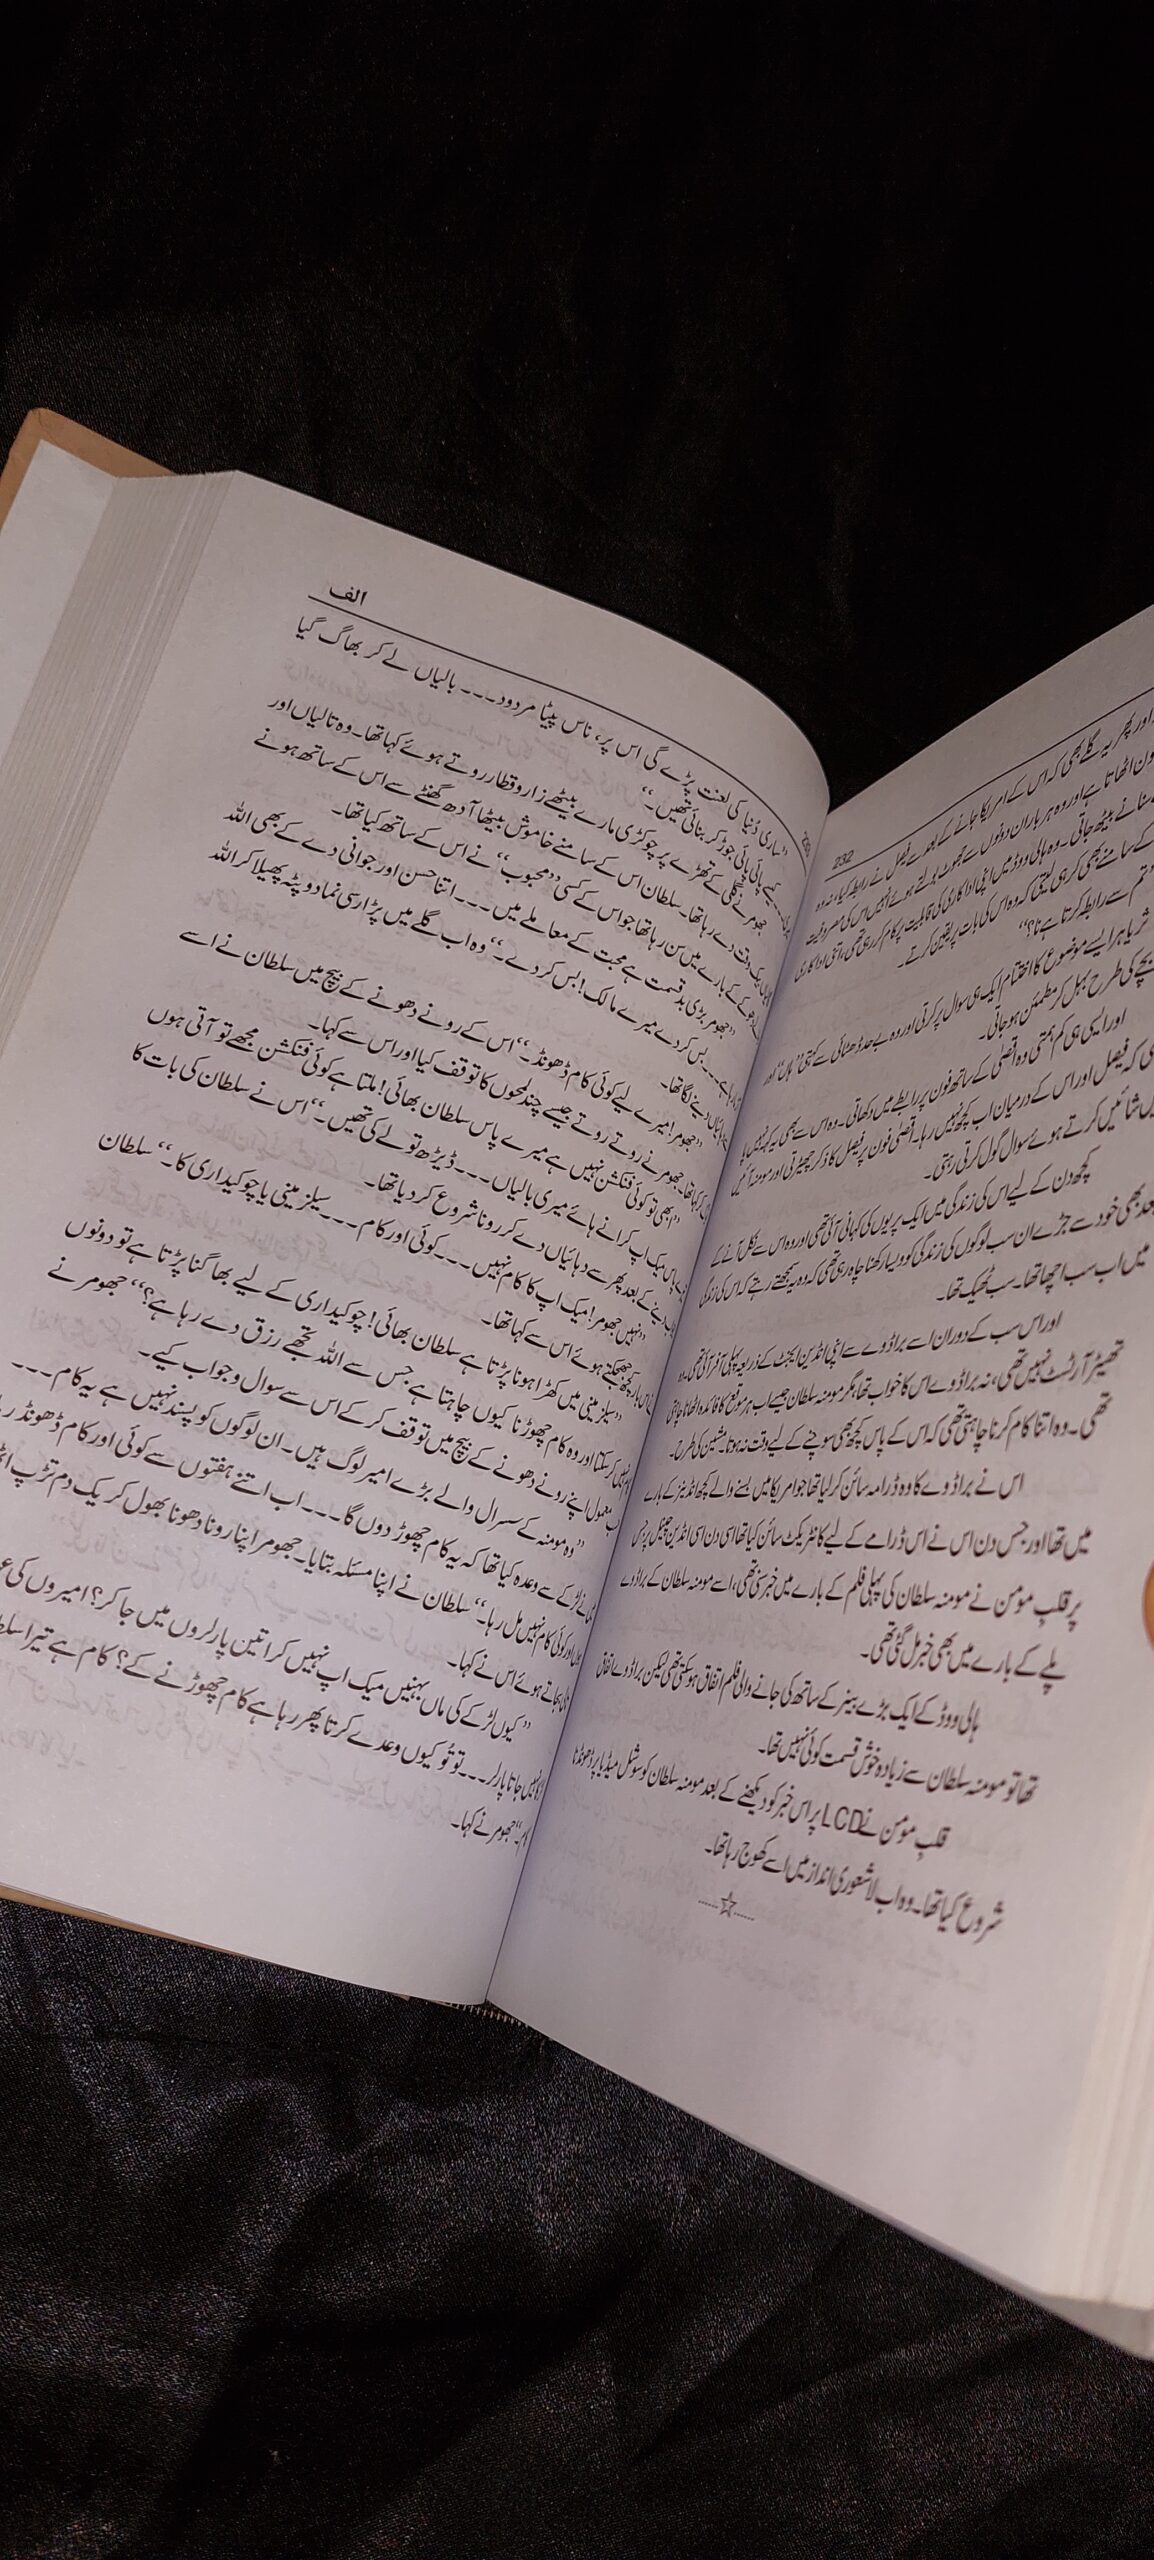 232
اور پھر یہ گلے بھی کہ اس کے امریکا جانے کے بعد سے فیصل نے رابطہ کیا، نہ وہ
فون اٹھاتا ہے اور وہ ہر بار ان دونوں سے جھوٹ بولتے ہوئے انہیں اس کی مصروفیت
سنانے بیٹھ جاتی۔ وہ ہالی ووڈ میں اپنی اداکاری کی قابلیت پر کام کر رہی تھی، اتنی اداکاری
کے سامنے بھی کر ہی لیتی کہ وہ اس کی بات پر یقین کرتے۔
تم سے رابطہ کرتا ہے نا؟“
ثریا ہر ایسے موضوع کا اختتام ایک ہی سوال پر کرتی اور وہ بے حد ڈھٹائی سے کہتی ”ہاں“ اور
بچے کی طرح بہل کر مطمئن ہو جاتی۔
اور ایسی ہی کم ہمتی وہ اقصیٰ کے ساتھ فون پر رابطے میں دکھاتی۔ وہ اس سے بھی یہ کہہ نہیں پا
کہ فیصل اور اس کے درمیان اب کچھ نہیں رہا۔ اقصیٰ فون پر فیصل کا ذکر چھیڑتی اور مومنہ آئیں
شائیں کرتے ہوئے سوال گول کرتی رہتی۔
کچھ دن کے لیے اس کی زندگی میں ایک پریوں کی کہانی آئی تھی اور وہ اس سے نکل آنے کے
بعد بھی خود سے جڑے ان سب لوگوں کی زندگی کو ویسا رکھنا چاہ رہی تھی کہ وہ یہ سمجھتے رہتے کہ اس کی زندگی
میں اب سب اچھا تھا۔ سب ٹھیک تھا۔
اور اس سب کے دوران اسے براڈوے سے اپنی انڈین ایجنٹ کے ذریعہ پہلی آفر آئی تھی، وہ
تھیٹر آرٹسٹ نہیں تھی، نہ براڈوے اس کا خواب تھا مگر مومنہ سلطان جیسے اب ہر موقع کا فائدہ اٹھانا چاہتی
تھی۔ وہ اتنا کام کرنا چاہتی تھی کہ اس کے پاس کچھ بھی سوچنے کے لیے وقت نہ ہوتا۔ مشین کی طرح۔
اس نے براڈوے کا وہ ڈرامہ سائن کر لیا تھا جو امریکا میں بسنے والے کچھ انڈینز کے بارے
میں تھا اور جس دن اس نے اس ڈرامے کے لیے کانٹریکٹ سائن کیا تھا اسی دن اسی انڈین چینل پر جس
پر قلبِ مومن نے مومنہ سلطان کی پہلی فلم کے بارے میں خبر سنی تھی، اسے مومنہ سلطان کے براڈوے
پلے کے بارے میں بھی خبر مل گئی تھی۔
ہالی ووڈ کے ایک بڑے بینر کے ساتھ کی جانے والی فلم اتفاق ہو سکتی تھی لیکن براڈوے اتفاق
تھا تو مومنہ سلطان سے زیادہ خوش قسمت کوئی نہیں تھا۔
قلبِ مومن نے LCD پر اس خبر کو دیکھنے کے بعد مومنہ سلطان کو سوشل میڈیا پر ڈھونڈنا
شروع کیا تھا۔ وہ اب لاشعوری انداز میں اسے کھوج رہا تھا۔
......☆......
الف
”ساری دُنیا کی لعنت پڑے گی اس پر، ناس پیٹا مردود۔۔۔ بالیاں لے کر بھاگ گیا
پائی پائی جوڑ کر بنائی تھیں۔“
جھومر نے گلی کے تھڑے پر چوکڑی مارے بیٹھے زار و قطار روتے ہوئے کہا تھا۔ وہ تالیاں اور
وقت دے رہا تھا۔ سلطان اس کے سامنے خاموش بیٹھا آدھ گھنٹے سے اس کے ساتھ ہونے
کے بارے میں سن رہا تھا جو اس کے کسی ”محبوب“ نے اس کے ساتھ کیا تھا۔
”جھومر بڑی بدقسمت ہے محبت کے معاملے میں۔۔۔ اتنا حسن اور جوانی دے کے بھی اللہ
بس کر دے میرے مالک! بس کر دے۔“ وہ اب گلے میں پڑا رسی نما دوپٹہ پھیلا کر اللہ
دینے لگا تھا۔
”جھومر! میرے لیے کوئی کام ڈھونڈ۔“ اس کے رونے دھونے کے بیچ میں سلطان نے اسے
کہا تھا۔ جھومر نے روتے روتے جیسے چند لمحوں کا توقف کیا اور اس سے کہا۔
”ابھی تو کوئی فنکشن نہیں ہے میرے پاس سلطان بھائی! ملتا ہے کوئی فنکشن مجھے تو آتی ہوں
پاس میک اپ کرانے ہائے میری بالیاں۔۔۔ ڈیڑھ تولے کی تھیں۔“ اس نے سلطان کی بات کا
دینے کے بعد پھر سے دہائیاں دے کر رونا شروع کر دیا تھا۔
”نہیں جھومر! میک اپ کا کام نہیں۔۔۔ کوئی اور کام۔۔۔ سیلز مینی یا چوکیداری کا۔“ سلطان
کچھ جھجکتے ہوئے اس سے کہا تھا۔
”سیلز مینی میں کھڑا ہونا پڑتا ہے سلطان بھائی! چوکیداری کے لیے بھاگنا پڑتا ہے تو دونوں
نہیں کر سکتا اور وہ کام چھوڑنا کیوں چاہتا ہے جس سے اللہ تجھے رزق دے رہا ہے؟“ جھومر نے
معمول اپنے رونے دھونے کے بیچ میں توقف کر کے اس سے سوال و جواب کیے۔
”وہ مومنہ کے سسرال والے بڑے امیر لوگ ہیں۔ ان لوگوں کو پسند نہیں ہے یہ کام۔۔۔
لڑکے سے وعدہ کیا تھا کہ یہ کام چھوڑ دوں گا۔۔۔ اب اتنے ہفتوں سے کوئی اور کام ڈھونڈ
اور کوئی کام نہیں مل رہا۔“ سلطان نے اپنا مسئلہ بتایا۔ جھومر اپنا رونا دھونا بھول کر یک دم تڑپ
بجاتے ہوئے اس نے کہا۔
”کیوں لڑکے کی ماں بہنیں میک اپ نہیں کراتیں پارلروں میں جا کر؟ امیروں کی
نہیں جاتا پارلر۔۔۔ تو تُو کیوں وعدے کرتا پھر رہا ہے کام چھوڑنے کے؟ کام ہے تیرا
جھومر نے کہا۔